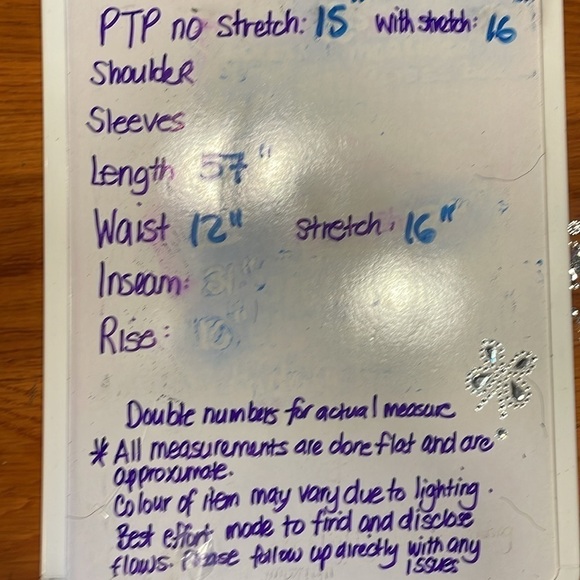 PTP no Stretch: 15" With stretch: 16
Shoulder
Sleeves
Length 57"
Waist 12" stretch: 16"
Inseam:
Rise:
Double numbers for actual measure
* All measurements are done flat and are
approximate.
Colour of item may vary due to lighting.
Best effort made to find and disclose
flows. Please follow up directly with any
issues